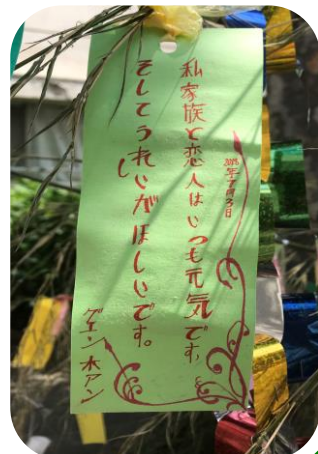 2018年7月3日
私家族と恋人はいつも元気です、
そしてうれしいがほしいです。
グエン ホアン